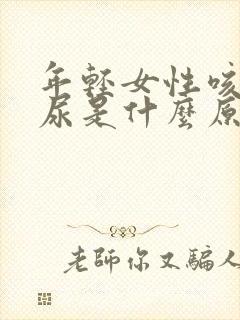 年輕女性咳
尿是什麼原
老師你又騙人